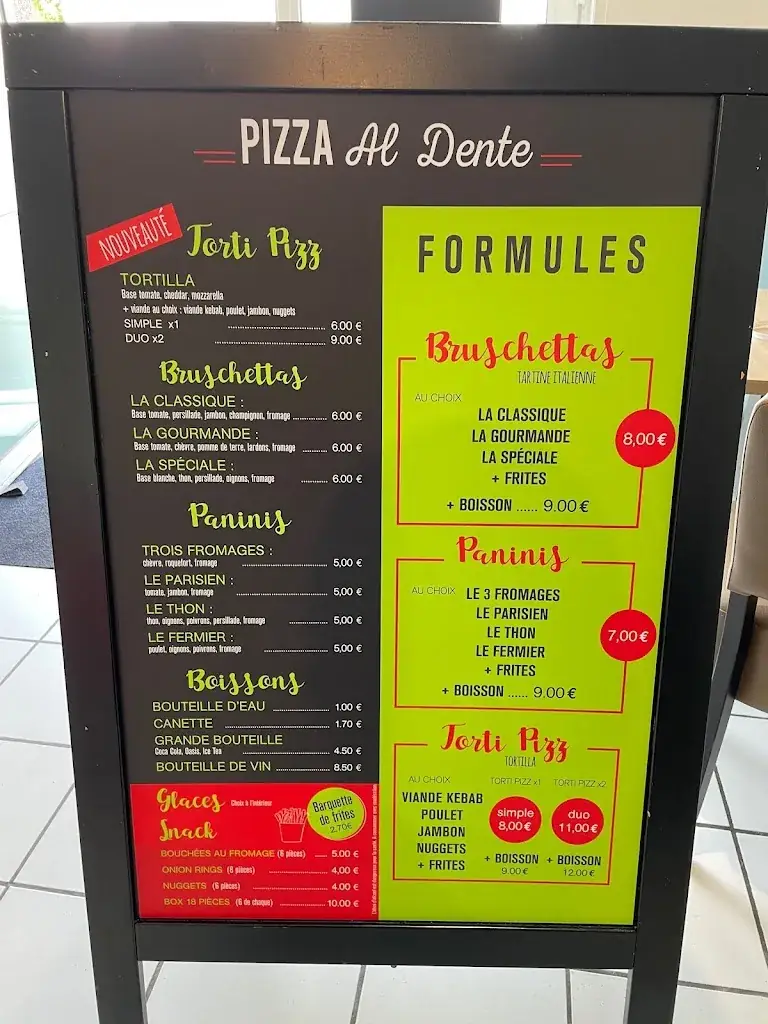 PIZZA Al Dente
NOUVEAUTÉ
Torti Pizz
TORTILLA
Base tomate, cheddar, mozzarella
+ viande au choix : viande kebab, poulet, jambon, nuggets
SIMPLE x1 ........................ 6.00 €
DUO x2 ........................ 9.00 €
Bruschettas
LA CLASSIQUE :
Base tomate, persillade, jambon, champignon, fromage ............ 6.00 €
LA GOURMANDE :
Base tomate, chèvre, pomme de terre, lardons, fromage ......... 6.00 €
LA SPÉCIALE :
Base blanche, thon, persillade, oignons, fromage ......... 6.00 €
Paninis
TROIS FROMAGES :
chèvre, roquefort, fromage ........................ 5,00 €
LE PARISIEN :
tomate, jambon, fromage ........................ 5,00 €
LE THON :
thon, oignons, poivrons, persillade, fromage ................ 5,00 €
LE FERMIER :
poulet, oignons, poivrons, fromage ................ 5,00 €
Boissons
BOUTEILLE D'EAU .................... 1.00 €
CANETTE ........................ 1.70 €
GRANDE BOUTEILLE
Coca Cola, Oasis, Ice Tea ........................ 4.50 €
BOUTEILLE DE VIN .................... 8.50 €
Glaces Choix à l'intérieur
Snack
Barquette
de frites
2,70€
BOUCHÉES AU FROMAGE (6 pièces) .... 5.00 €
ONION RINGS (6 pièces) .................... 4,00 €
NUGGETS (6 pièces) .................... 4.00 €
BOX 18 PIÈCES (6 de chaque) ................ 10.00 €
FORMULES
Bruschettas
TARTINE ITALIENNE
AU CHOIX
LA CLASSIQUE
LA GOURMANDE
LA SPÉCIALE
+ FRITES
8,00 €
+ BOISSON ...... 9.00 €
Paninis
AU CHOIX
LE 3 FROMAGES
LE PARISIEN
LE THON
LE FERMIER
+ FRITES
7,00 €
+ BOISSON ...... 9.00 €
Torti Pizz
TORTILLA
AU CHOIX
VIANDE KEBAB
POULET
JAMBON
NUGGETS
+ FRITES
TORTI PIZZ x1
simple
8,00 €
+ BOISSON
9.00 €
TORTI PIZZ x2
duo
11,00 €
+ BOISSON
12.00 €